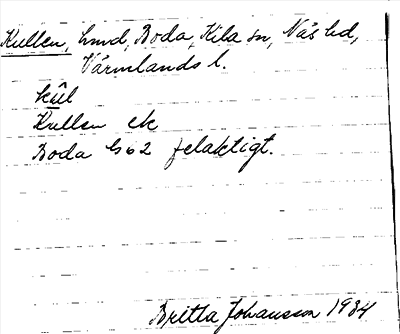 Kullen, hmd, Boda, Kila sn, Näs hd,
Värmlands l.
kûl
Kullen ek
Boda 62 felaktigt.
Britta Johansson 1934